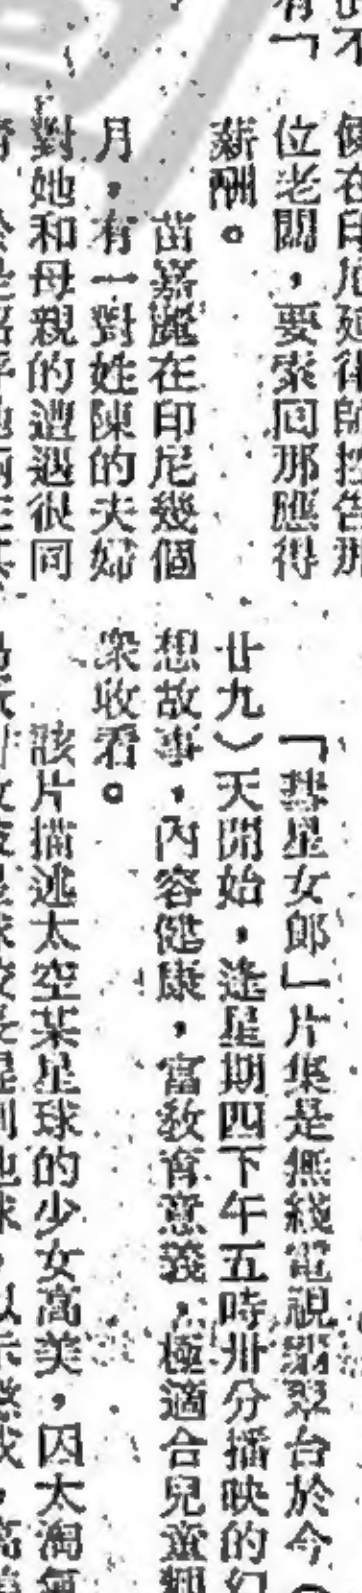 有「
便在印尼延律師控告那
位老闆，要索囘那應得
薪酬。
苗嘉麗在印尼幾個
月，有一對姓陳的夫婦
對她和母親的遭遇很同
「彗星女郎」片集是無綫電視翡翠台於今（
廿九）天開始，逢星期四下午五時卅分播映的幻
想故事，內容健康，富敎育意義，極適合兒童觀
衆收看。
該片描述太空某星球的少女高美，因太淘氣